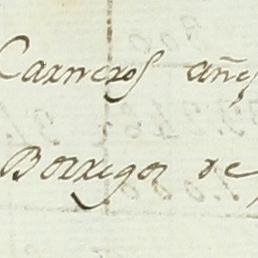 Carneros añe
Borregos de